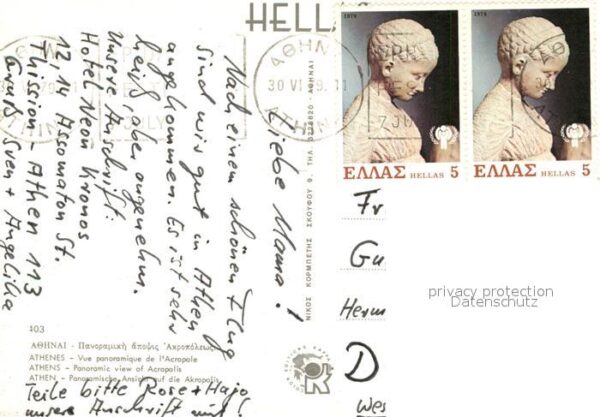 HELLAS
1979
1979
ΕΛΛΑΣ HELLAS 5
ΕΛΛΑΣ HELLAS 5
ΑΘΗΝΑ
30 VI 79
Liebe Mama!
Nach einem schönen Flug
sind wir gut in Athen
angekommen. Es ist sehr
heiß, aber angenehm.
Unsere Anschrift:
Hotel Neon Kronos
12 14 Assomaton St.
Thission - Athen 113
Gruß Sven + Angelika
Teile bitte Rose + Hajo
unsere Anschrift mit!
Fr
Gu
Herm
D
Wes
privacy protection
Datenschutz
ΝΙΚΟΣ ΚΟΡΜΠΕΤΗΣ ΣΚΟΥΦΟΥ 9, ΤΗΛ. ΑΘΗΝΑΙ
103
ΑΘΗΝΑΙ - Πανοραμική ἄποψις Ἀκροπόλεως
ATHENES - Vue panoramique de l'Acropole
ATHENS - Panoramic view of Acropolis
ATHEN - Panoramische Ansicht auf die Akropolis